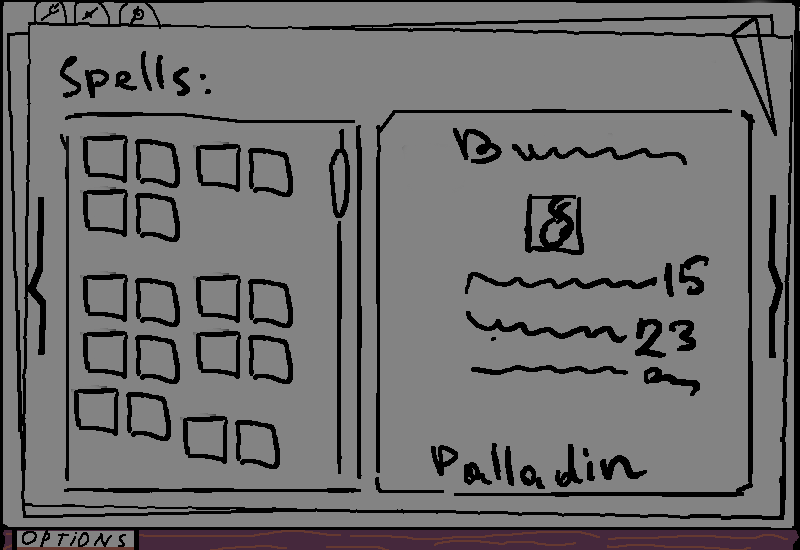 Spells:
B
8
15
23
Palladin
OPTIONS